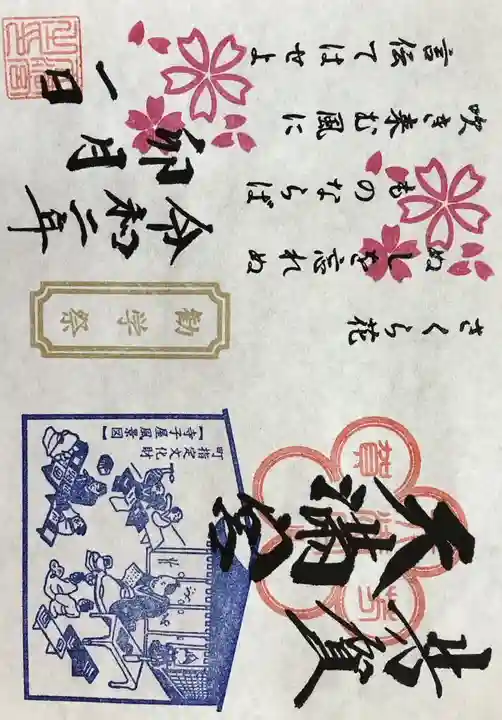 芳賀
天満宮
賀
芳
町指定文化財
【寺子屋風景図】
さくら花
ぬしを忘れぬ
ものならば
吹き来む風に
言伝てはせよ
勧学祭
令和二年
卯月
一日